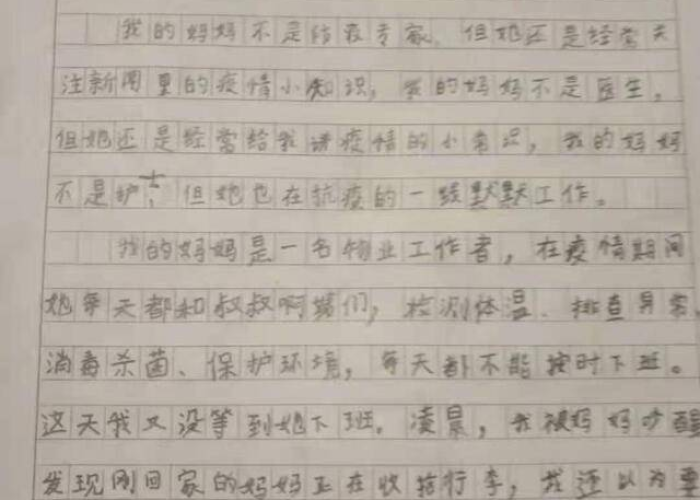 我的妈妈不是防疫专家，但她还是经常关
注新闻里的疫情小知识，我的妈妈不是医生，
但她还是经常给我讲疫情的小常识，我的妈妈
不是护士，但她也在抗疫的一线默默工作。
我的妈妈是一名物业工作者，在疫情期间
她每天都和叔叔阿姨们，检测体温、排查异常、
消毒杀菌、保护环境，每天都不能按时下班。
这天我又没等到她下班。凌晨，我被妈妈吵醒
发现刚回家的妈妈正在收拾行李，我还以为要